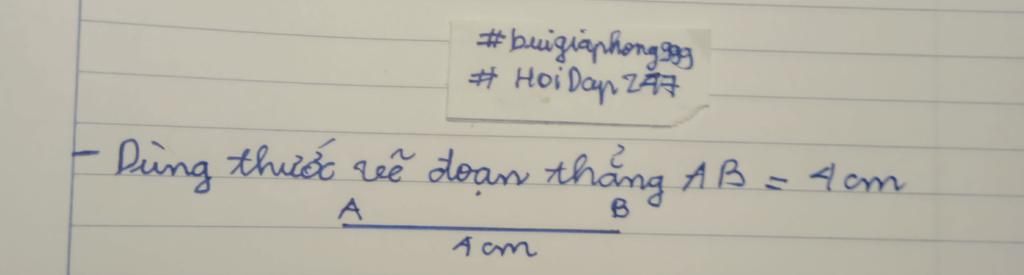 #buigiaphong999
# HoiDap247
- Dùng thước vẽ đoạn thẳng AB = 4cm
A B
4cm